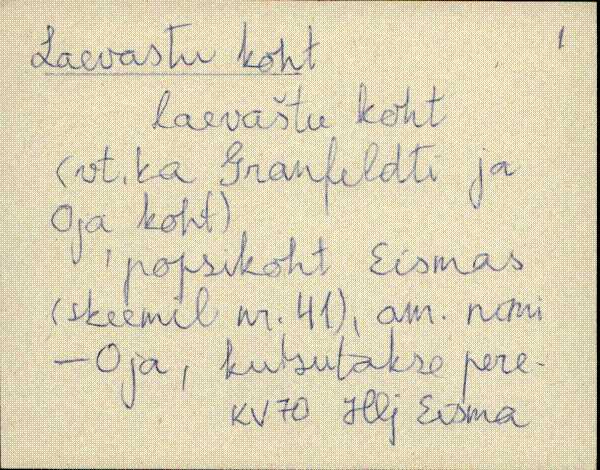 Laevastu koht 1
laevaštu koht
(vt. ka Granfeldti ja
Oja koht)
'popsikoht Eismas
(skeemil nr. 41), am. nimi
— Oja, kutsutakse pere-
KV70 Hlj Eisma